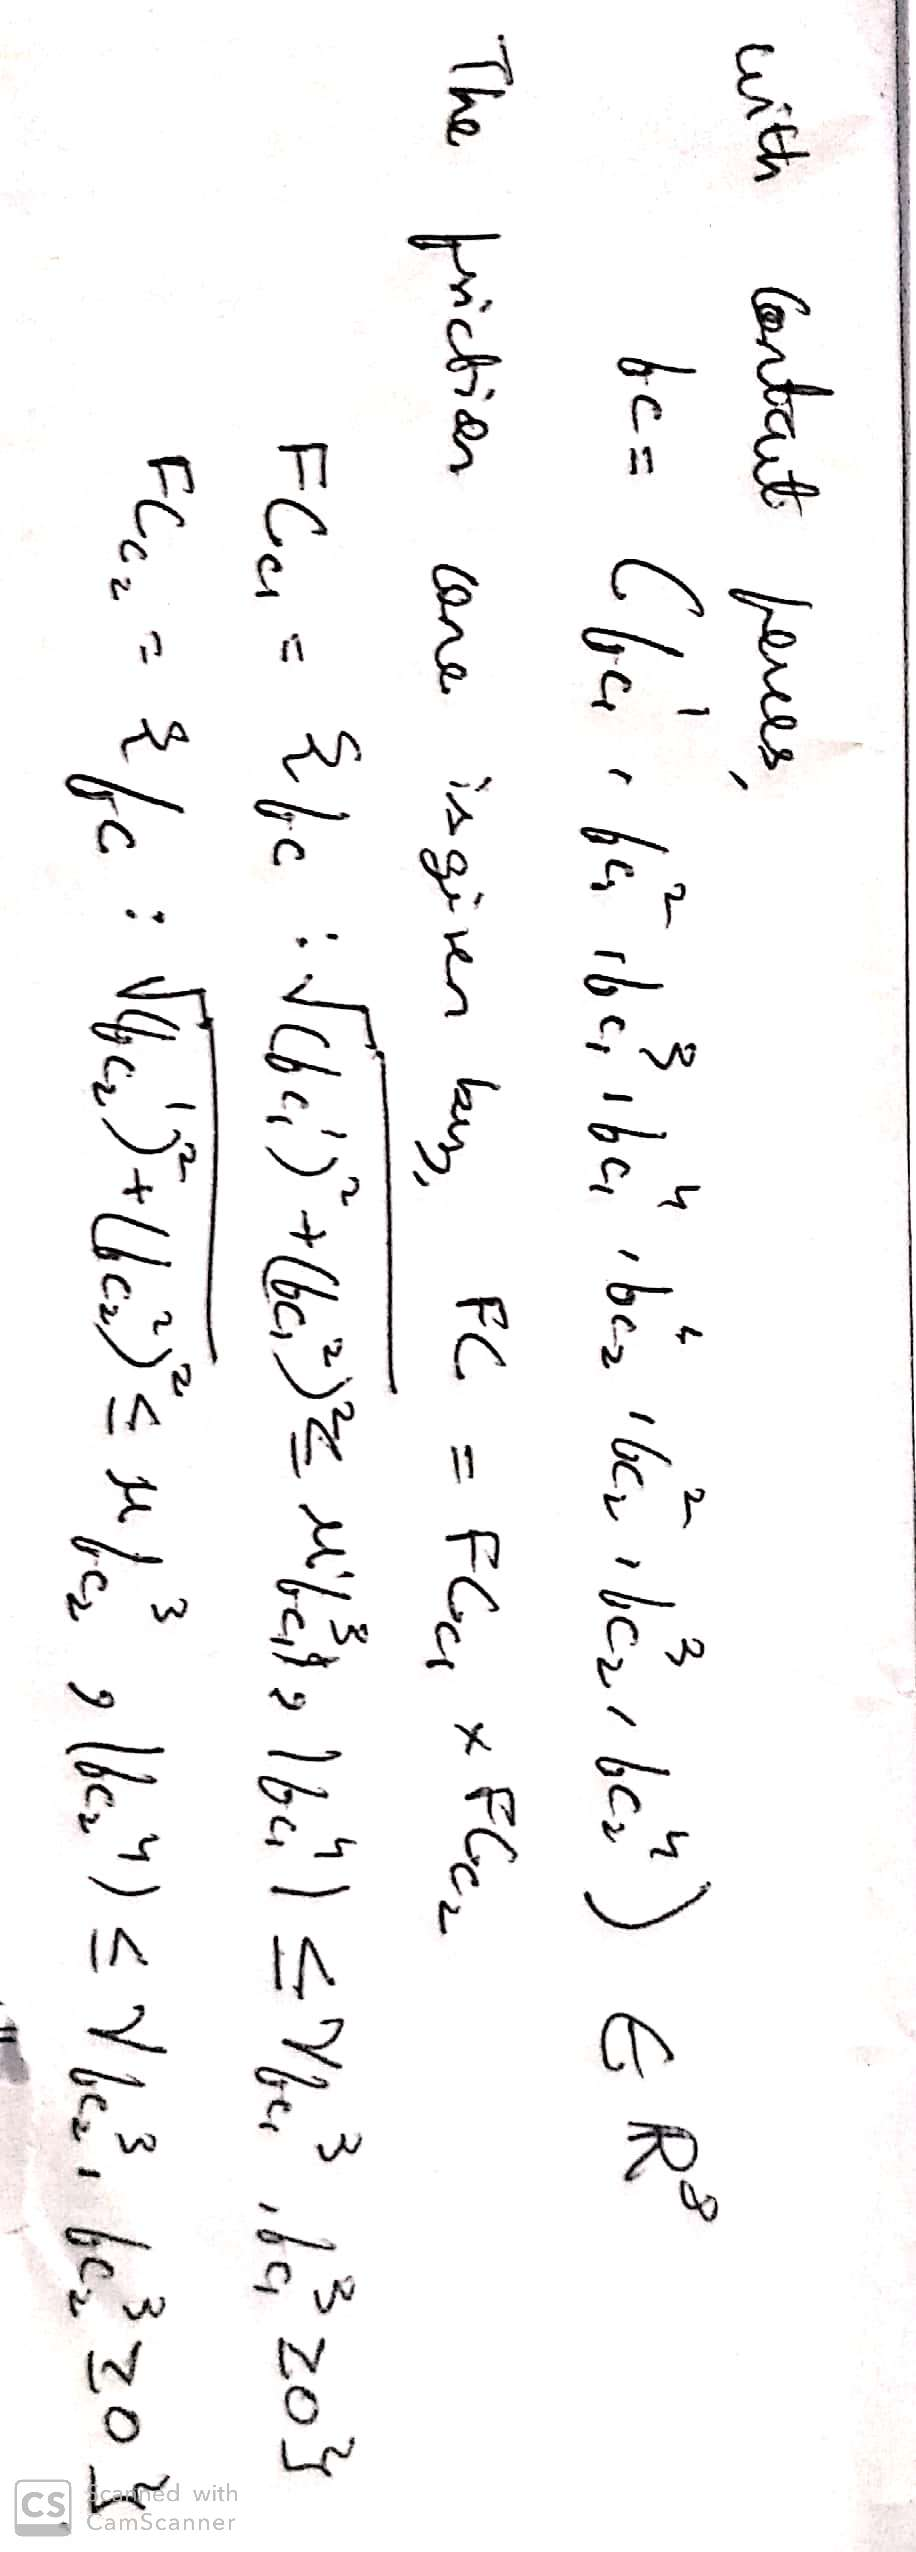 with contact forces,
fc = (fc₁¹, fc₁², fc₁³, fc₁⁴, fc₂¹, fc₂², fc₂³, fc₂⁴) ∈ R⁸
The friction cone is given by, FC = FCc₁ × FCc₂
FCc₁ = {fc : √((fc₁¹)² + (fc₁²)²) ≤ μ fc₁³}, |fc₁⁴| ≤ γfc₁³, fc₁³ ≥ 0}
FCc₂ = {fc : √((fc₂¹)² + (fc₂²)²) ≤ μ fc₂³, |fc₂⁴| ≤ γfc₂³, fc₂³ ≥ 0}
CS Scanned with
CamScanner